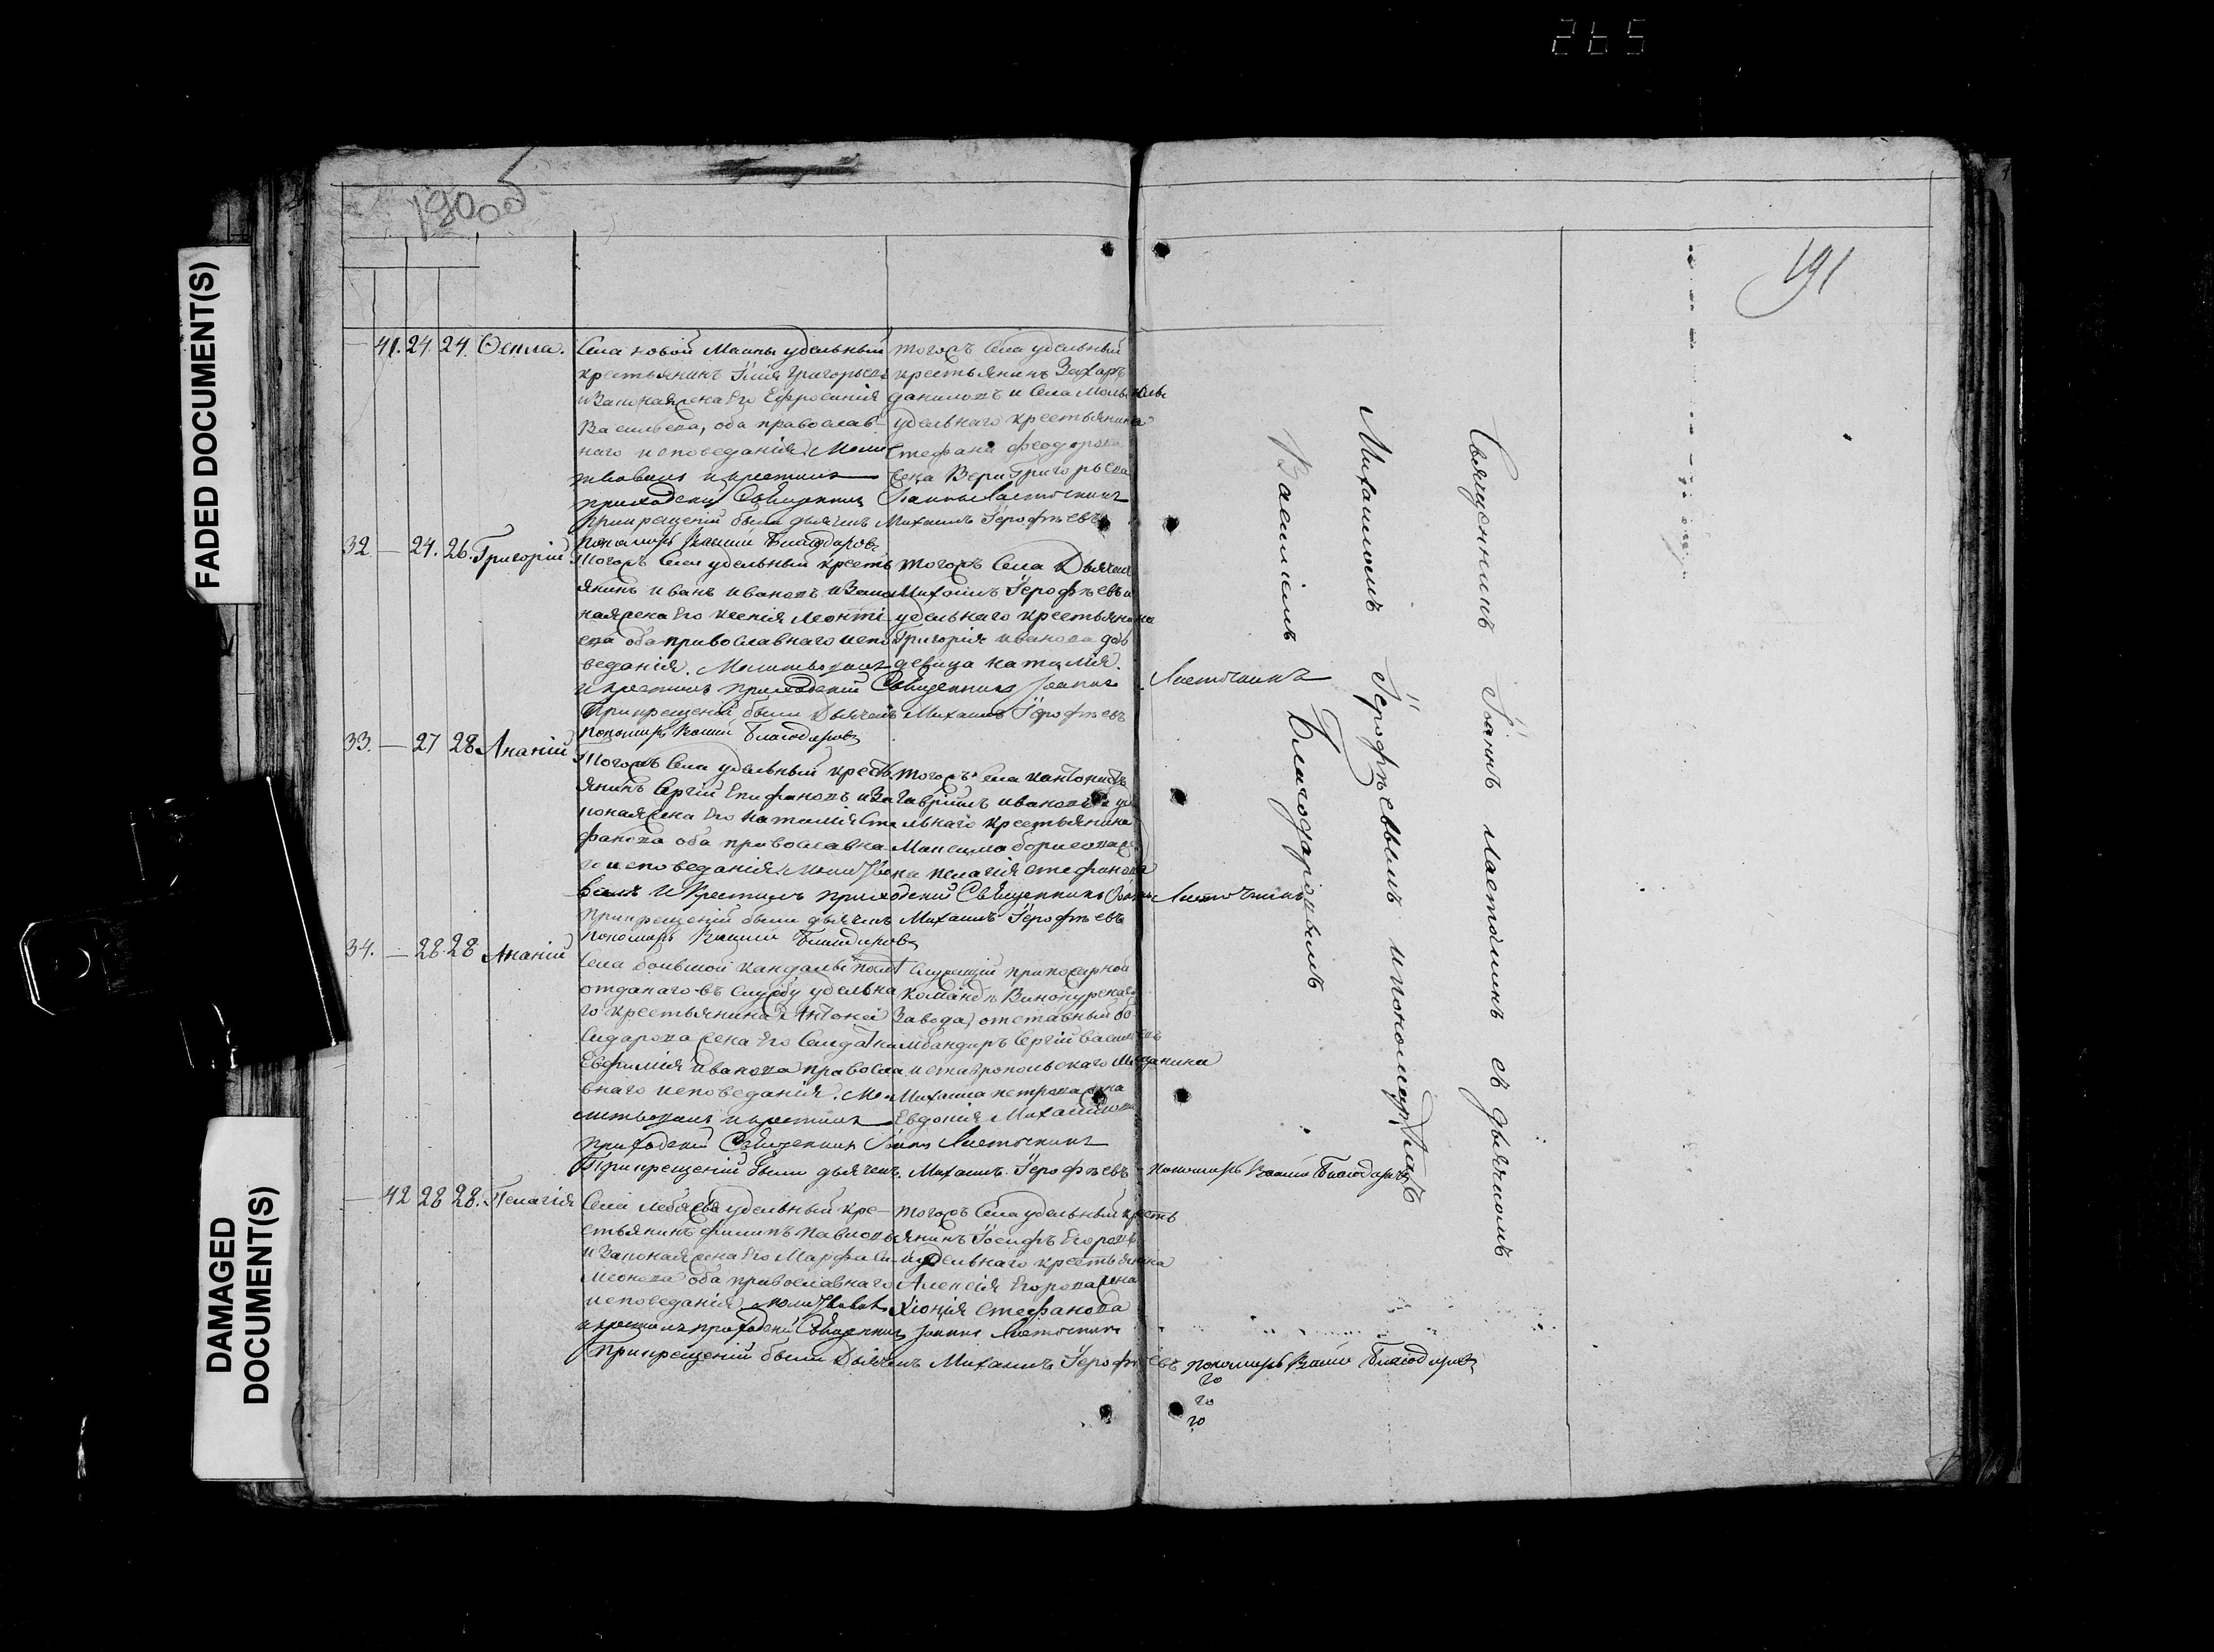 265
FADED DOCUMENT(S)
DAMAGED
DOCUMENT(S)
191
41. 24. 24. Ѳекла.
Села новой Маины удѣльный
крестьянинъ Илія Григорьевъ
и законная жена его Ефросинія
Васильева, оба православ-
наго исповеданія. Молит
твовалъ и крестилъ
приходскій Священникъ Іоаннъ Ласточкинъ
При крещеніи были дьячекъ Михаилъ Іерофѣевъ
пономарь Василій Благодаровъ
тогожъ села удѣльный
крестьянинъ Захаръ
Даниловъ и села
удельнаго крестьянина
Стефана Феодорова
жена Вера Григорьева
32. — 24. 26. Григорій
Тогожъ села удѣльный кресть
янинъ Иванъ Ивановъ и закон
ная жена его Ксенія Леонті
ева оба православнаго испо
веданія. Молитвовалъ
и крестилъ приходскій Священникъ Іоаннъ Ласточкинъ
При крещеніи были дьячекъ Михаилъ Іерофѣевъ
пономарь Василій Благодаровъ
тогожъ села Дьячекъ
Михаилъ Іерофѣевъ и
удѣльнаго крестьянина
Григорія Иванова доч
девица Наталія.
33. — 27 28 Ананій
Тогожъ села удѣльный кресть
янинъ Сергій Епифановъ и за
конная жена его Наталія Сте
фанова оба православна
го исповеданія. Молитво
валъ и крестилъ приходскій Священникъ Іоаннъ Ласточкинъ
При крещеніи были дьячекъ Михаилъ Іерофѣевъ
пономарь Василій Благодаровъ
тогожъ села кантонистъ
Гавріилъ Ивановъ и удѣ
льнаго крестьянина
Максима Борисова же
на Пелагія Стефанова
34. — 28 28 Ананій
Села большой Кандалы
отданаго въ службу удѣльна
го крестьянина Антона
Сидорова жена его Салдатка
Евфимія Иванова правосла
внаго исповеданія. Мо
литвовалъ и крестилъ
приходскій Священникъ Іоаннъ Ласточкинъ
При крещеніи были дьячекъ Михаилъ Іерофѣевъ пономарь Василій Благодаровъ
Служащій при пожарной
командѣ Винокуренаго
завода, отставный бо
мбандиръ Сергій Васильевъ
и ставропольскаго мещанина
Михаила Петрова жена
Евдокія Михайлова
— 42 28 28. Пелагія
Села Лебяжья удѣльный кре-
стьянинъ Филипъ Павловъ
и законная жена его Марфа Си-
меонова оба православнаго
исповеданія. молитвовалъ
и крестилъ приходскій Священникъ Іоаннъ Ласточкинъ
При крещеніи были Дьячекъ Михаилъ Іерофѣевъ пономарь Василій Благодаровъ
тогожъ села удѣльный кресть
янинъ Іосифъ Егоровъ
и удѣльнаго крестьянина
Алексія Егорова жена
Хіонія Стефанова
го
го
го
Священникъ Іоаннъ Ласточкинъ съ дьячкомъ
Михаиломъ Іерофѣевымъ и пономаремъ
Василіемъ Благодаровымъ